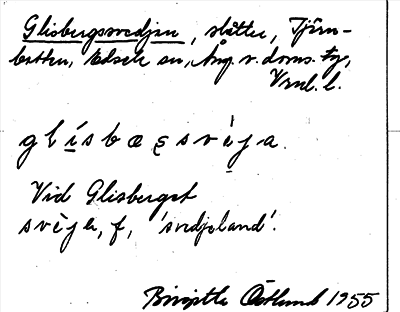 Glisbergsvedjan, slåtter, Tjärn-
botten, Edsele sn, Ång. v. doms. fg,
Vrml. l.
glịsbæʂsvèja.
Vid Glisberget
svèja, f, 'svedjeland'.
Birgitta Östlund 1955